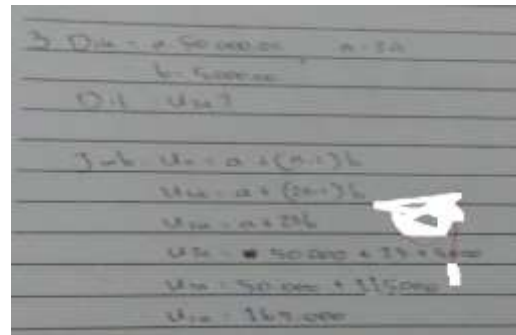 3 Dik = a = 50.000.00 n = 24
b = 5000.00
Dit = U24?
Jwb = Un = a + (n-1)b
U24 = a + (24-1)b
U24 = a + 23b
U24 = 50.000 + 23 + 5000
U24 = 50.000 + 115000
U24 = 165.000